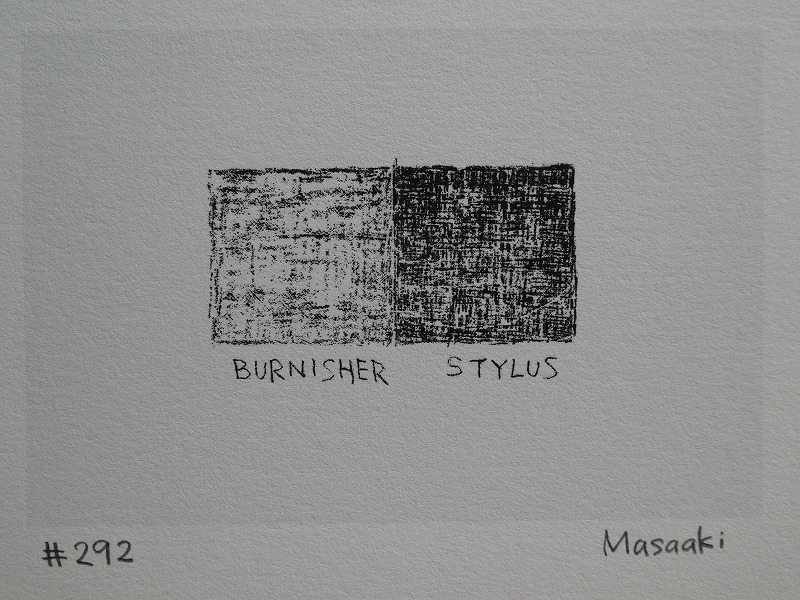 BURNISHER STYLUS
#292 Masaaki